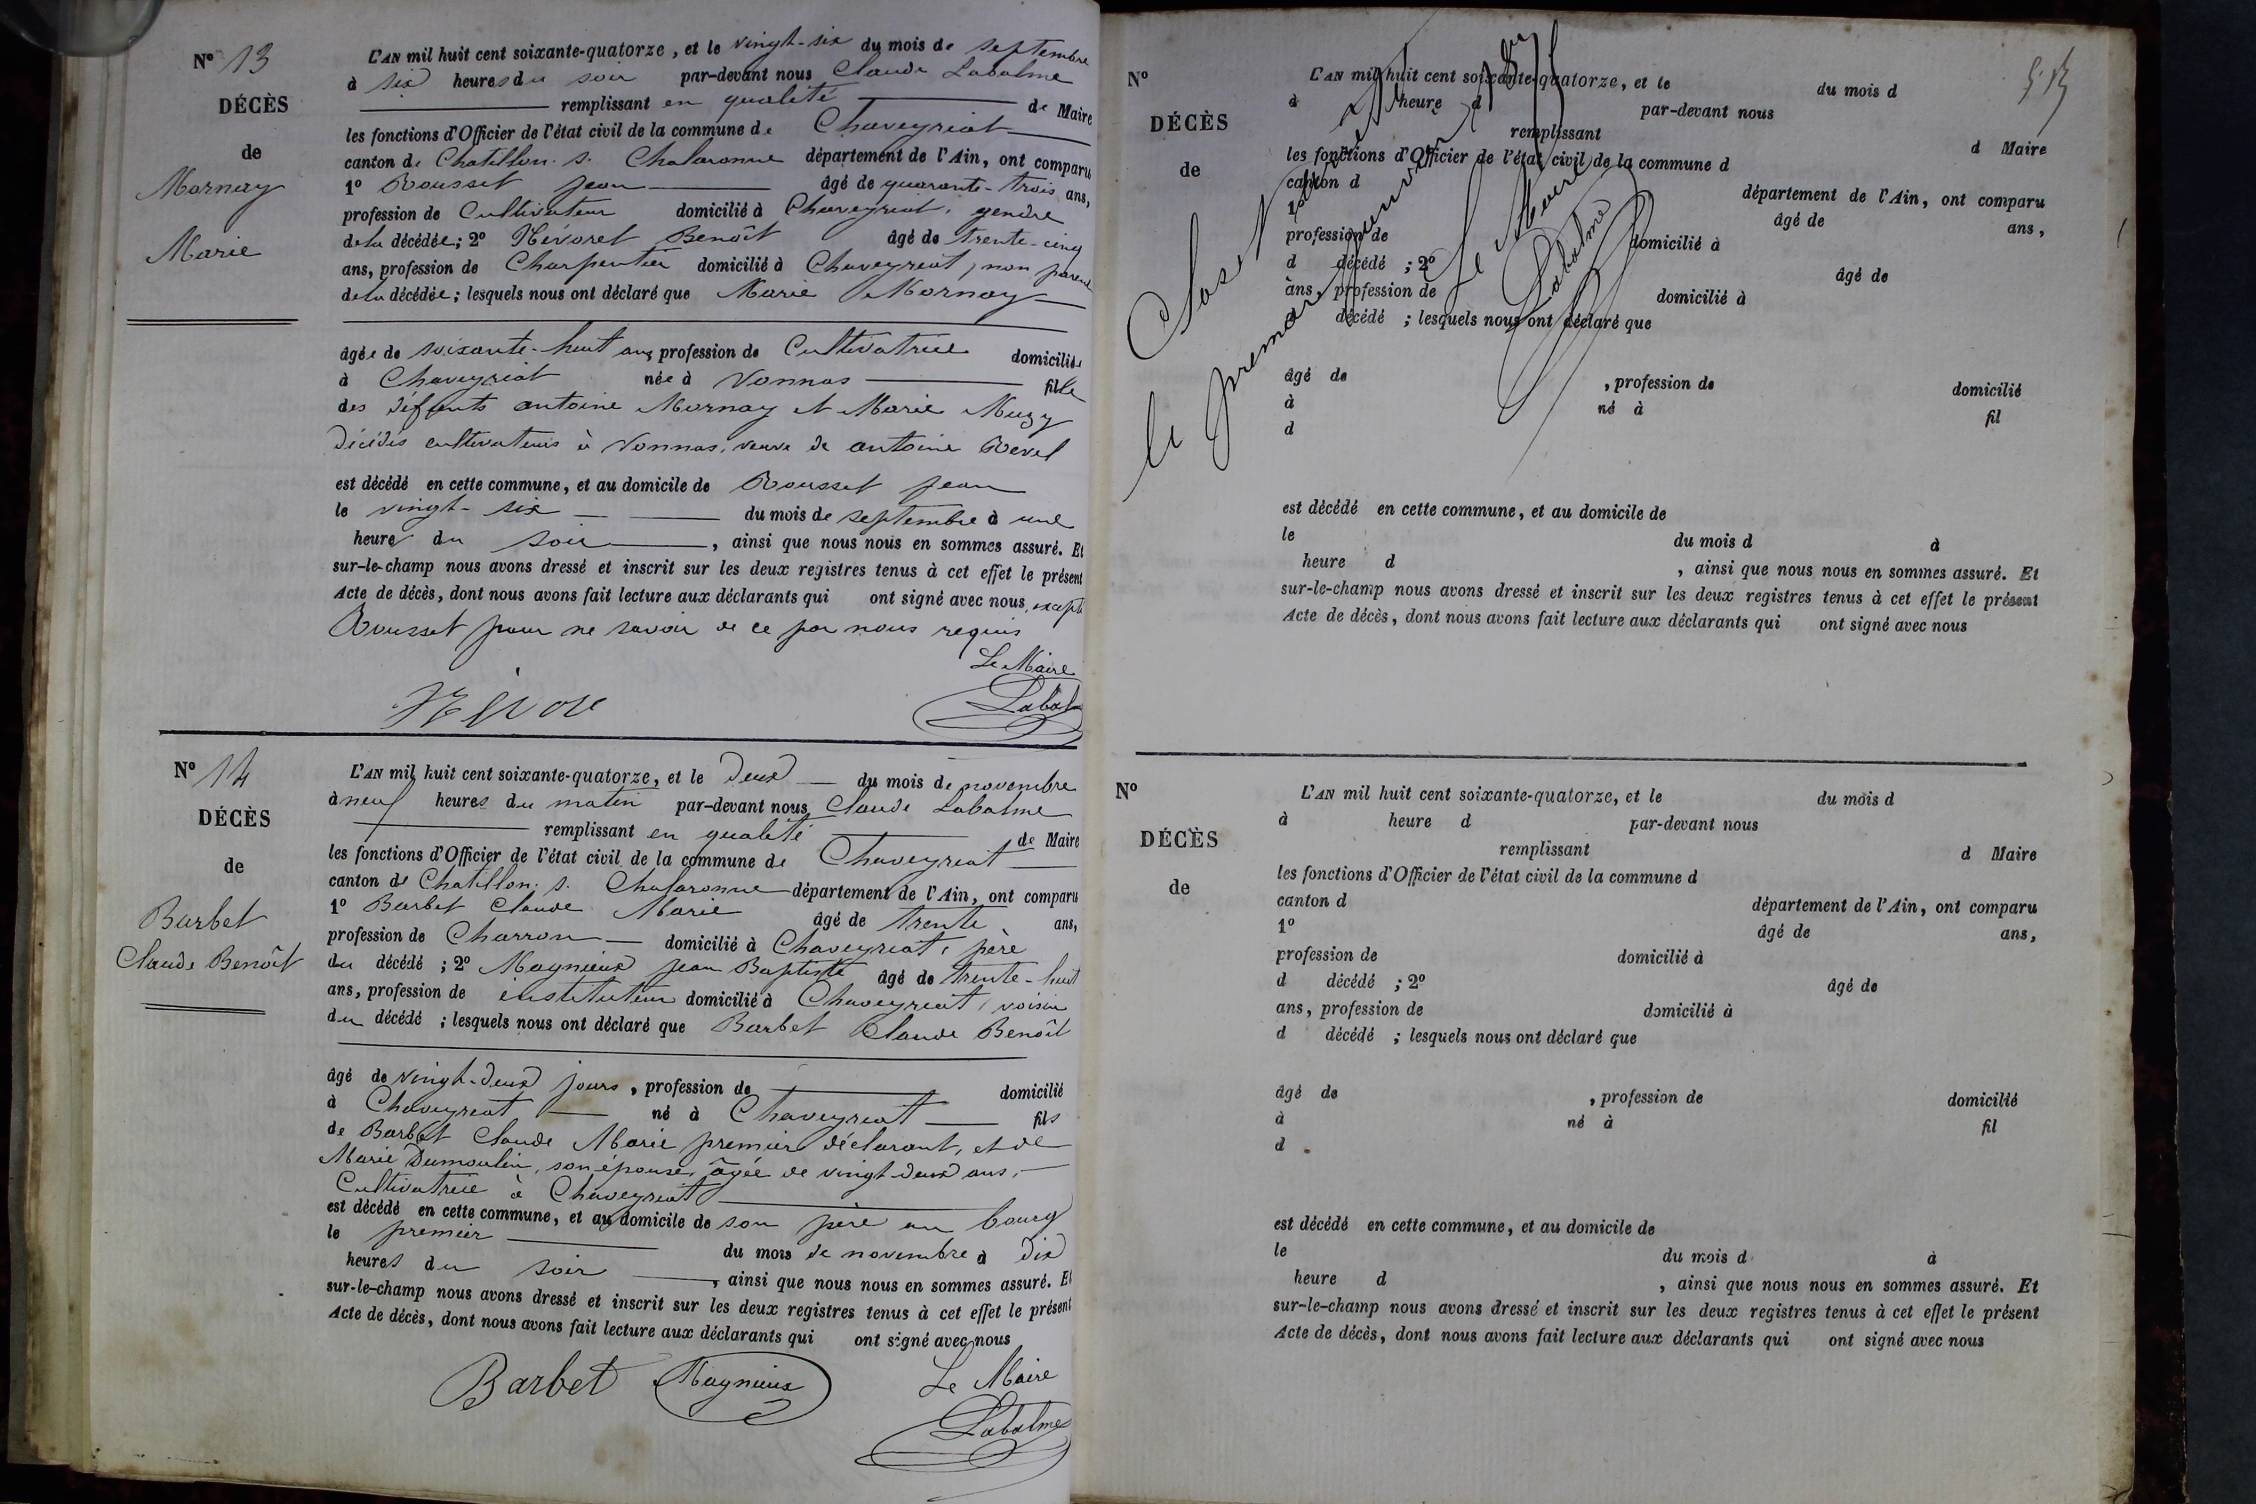 N° 13
DÉCÈS
de
Mornay
Marie
L'AN mil huit cent soixante-quatorze, et le vingt-six du mois de septembre
à six heures du soir par-devant nous Claude Labalme
remplissant en qualité de Maire
les fonctions d'Officier de l'état civil de la commune de Chaveyriat
canton de Chatillon. s. Chalaronne département de l'Ain, ont comparu
1° Rousset Jean âgé de quarante-trois ans,
profession de Cultivateur domicilié à Chaveyriat, gendre
de la décédée; 2° Névoret Benoît âgé de trente-cinq
ans, profession de Charpentier domicilié à Chaveyriat, non parent
de la décédée; lesquels nous ont déclaré que Marie Mornay
âgée de soixante-huit ans, profession de Cultivatrice domiciliée
à Chaveyriat née à Vonnas fille
des défunts antoine Mornay et Marie Muzy
décédés cultivateurs à Vonnas, veuve de antoine Revel
est décédé en cette commune, et au domicile de Rousset Jean
le vingt-six du mois de septembre à une
heure du soir, ainsi que nous nous en sommes assuré. Et
sur-le-champ nous avons dressé et inscrit sur les deux registres tenus à cet effet le présent
Acte de décès, dont nous avons fait lecture aux déclarants qui ont signé avec nous, excepté
Rousset pour ne savoir de ce par nous requis
Le Maire
Labal
N° 14
DÉCÈS
de
Barbet
Claude Benoît
L'AN mil huit cent soixante-quatorze, et le deux du mois de novembre
à neuf heures du matin par-devant nous Claude Labalme
remplissant en qualité de Maire
les fonctions d'Officier de l'état civil de la commune de Chaveyriat
canton de Chatillon. s. Chalaronne département de l'Ain, ont comparu
1° Barbet Claude Marie âgé de trente ans,
profession de Charron domicilié à Chaveyriat, père
du décédé; 2° Magnieux Jean Baptiste âgé de trente-huit
ans, profession de instituteur domicilié à Chaveyriat, voisin
du décédé; lesquels nous ont déclaré que Barbet Claude Benoît
âgé de vingt-deux jours, profession de domicilié
à Chaveyriat né à Chaveyriat fils
de Barbet Claude Marie premier déclarant, et de
Marie Dumoulin, son épouse, âgée de vingt-deux ans,
Cultivatrice à Chaveyriat
est décédé en cette commune, et au domicile de son père au bourg
le premier du mois de novembre à dix
heures du soir, ainsi que nous nous en sommes assuré. Et
sur-le-champ nous avons dressé et inscrit sur les deux registres tenus à cet effet le présent
Acte de décès, dont nous avons fait lecture aux déclarants qui ont signé avec nous
Barbet Magnieux Le Maire
Labalme
N°
DÉCÈS
de
L'AN mil huit cent soixante-quatorze, et le du mois d
à heure d par-devant nous
remplissant d Maire
les fonctions d'Officier de l'état civil de la commune d
canton d département de l'Ain, ont comparu
1° âgé de ans,
profession de domicilié à
d décédé ; 2° âgé de
ans, profession de domicilié à
d décédé ; lesquels nous ont déclaré que
âgé de , profession de domicilié
à né à fil
d
est décédé en cette commune, et au domicile de
le du mois d à
heure d , ainsi que nous nous en sommes assuré. Et
sur-le-champ nous avons dressé et inscrit sur les deux registres tenus à cet effet le présent
Acte de décès, dont nous avons fait lecture aux déclarants qui ont signé avec nous
Clos et
le premier Janvier
Le Maire
Labalme
N°
DÉCÈS
de
L'AN mil huit cent soixante-quatorze, et le du mois d
à heure d par-devant nous
remplissant d Maire
les fonctions d'Officier de l'état civil de la commune d
canton d département de l'Ain, ont comparu
1° âgé de ans,
profession de domicilié à
d décédé ; 2° âgé de
ans, profession de domicilié à
d décédé ; lesquels nous ont déclaré que
âgé de , profession de domicilié
à né à fil
d
est décédé en cette commune, et au domicile de
le du mois d à
heure d , ainsi que nous nous en sommes assuré. Et
sur-le-champ nous avons dressé et inscrit sur les deux registres tenus à cet effet le présent
Acte de décès, dont nous avons fait lecture aux déclarants qui ont signé avec nous